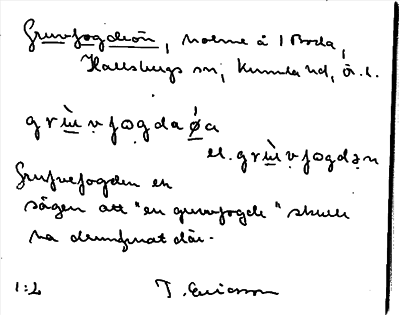 Gruvfogdeån, holme å l Boda,
Hallsbergs sn, Kumla hd, Ö. l.
grùv fo̱gdaǿa
el. grùv fogdən
Grufvefogden en
sägen att "en gruvfogde" skulle
ha drunknat där.
1:2 T. Ericsson